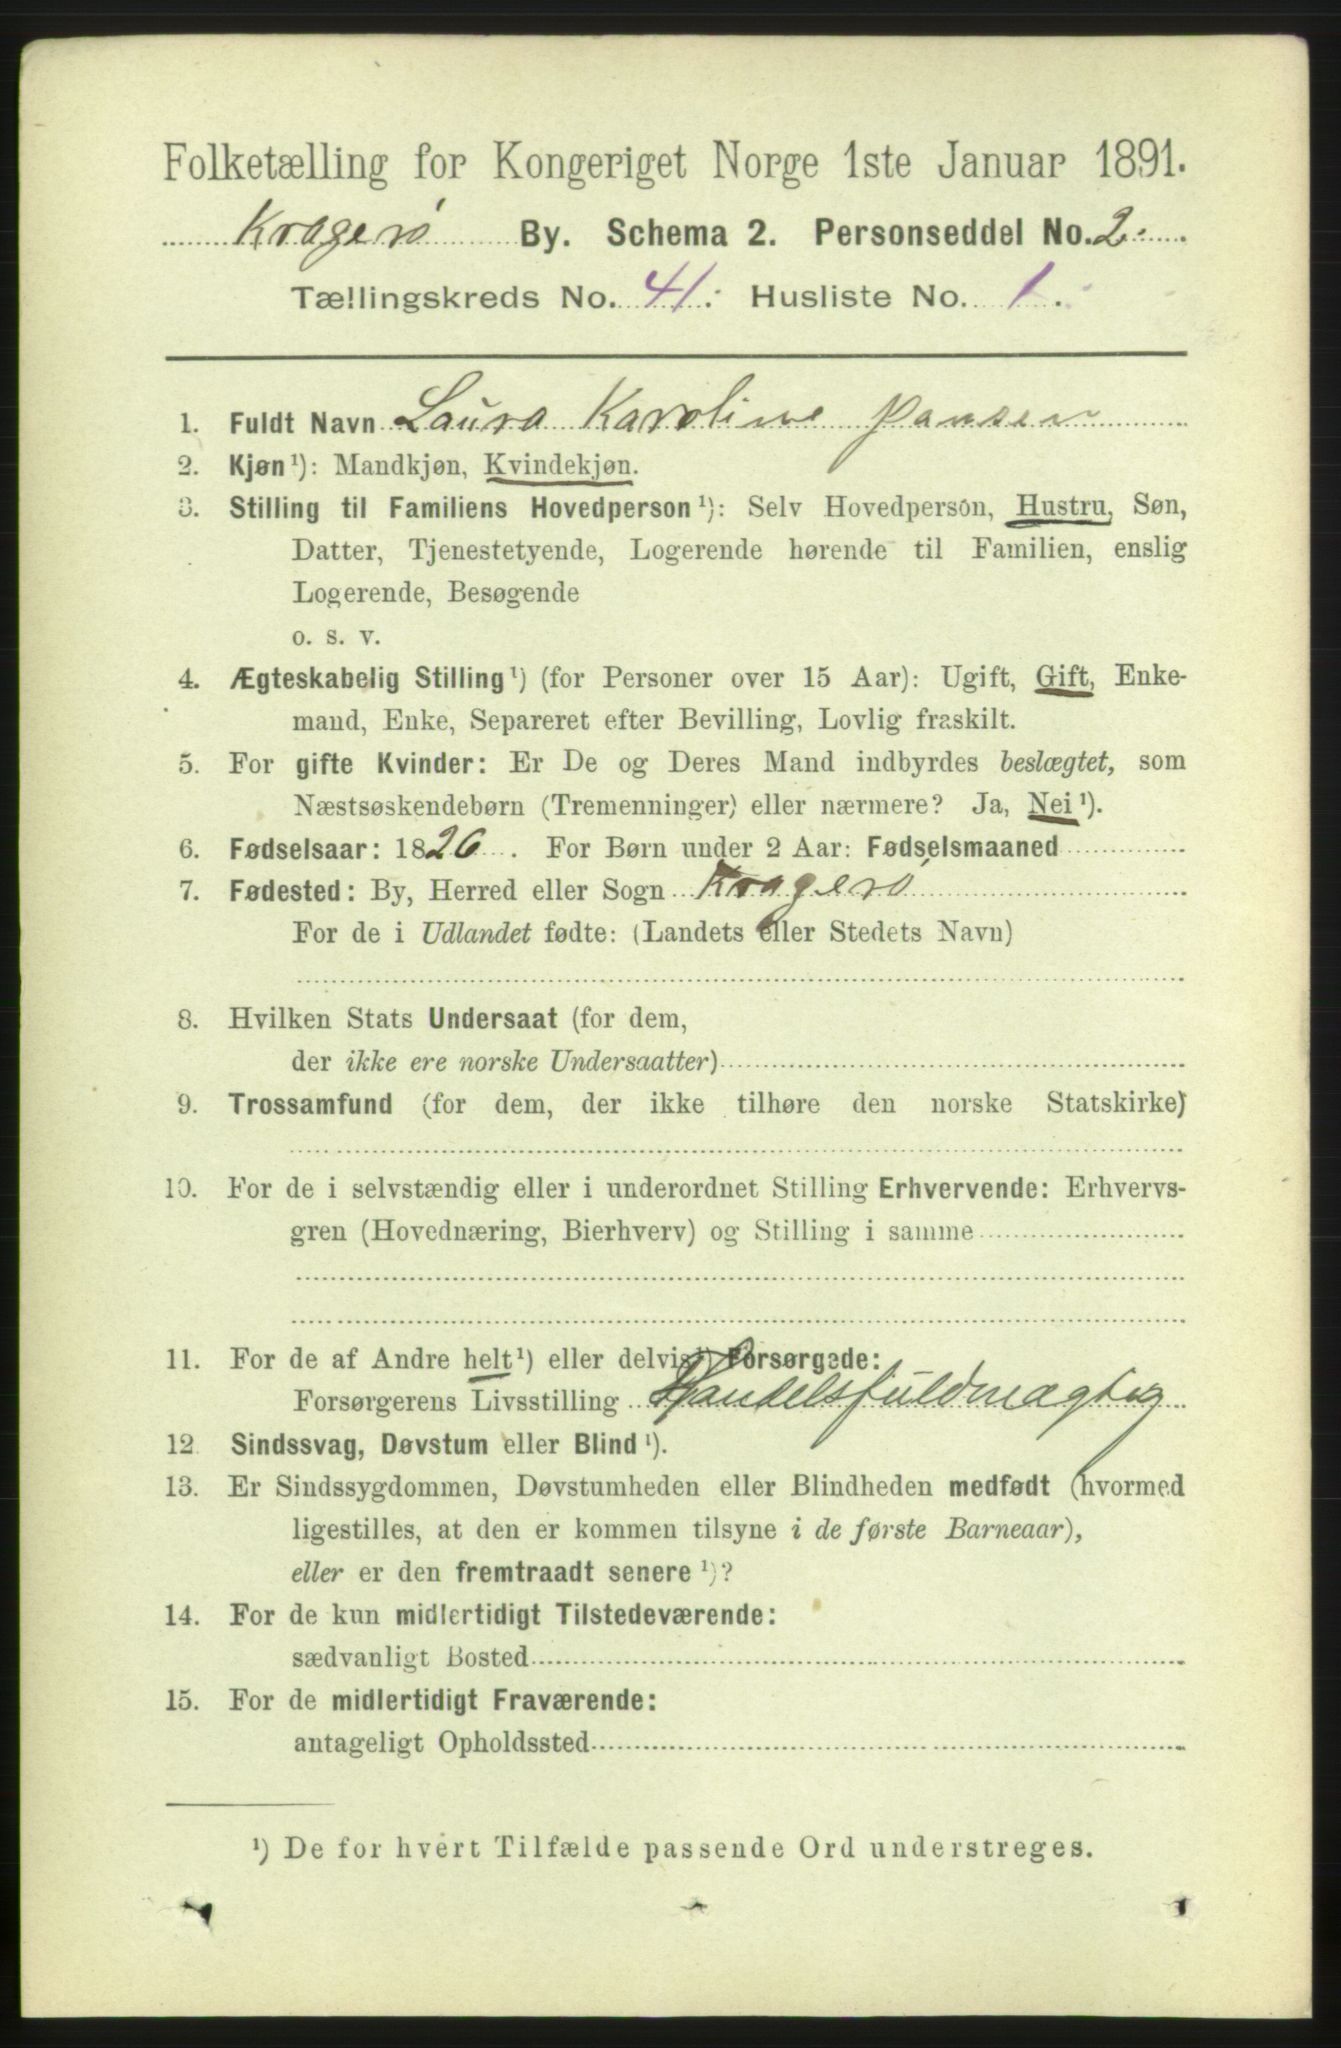 Folketælling for Kongeriget Norge 1ste Januar 1891.
Kragerø By. Schema 2. Personseddel No. 2.
Tællingskreds No. 41. Husliste No. 1.
1. Fuldt Navn Laura Karoline Jansen
2. Kjøn¹): Mandkjøn, Kvindekjøn.
3. Stilling til Familiens Hovedperson¹): Selv Hovedperson, Hustru, Søn,
Datter, Tjenestetyende, Logerende hørende til Familien, enslig
Logerende, Besøgende
o. s. v.
4. Ægteskabelig Stilling¹) (for Personer over 15 Aar): Ugift, Gift, Enke-
mand, Enke, Separeret efter Bevilling, Lovlig fraskilt.
5. For gifte Kvinder: Er De og Deres Mand indbyrdes beslægtet, som
Næstsøskendebørn (Tremenninger) eller nærmere? Ja, Nei¹).
6. Fødselsaar: 1826. For Børn under 2 Aar: Fødselsmaaned
7. Fødested: By, Herred eller Sogn Kragerø
For de i Udlandet fødte: (Landets eller Stedets Navn)
8. Hvilken Stats Undersaat (for dem,
der ikke ere norske Undersaatter)
9. Trossamfund (for dem, der ikke tilhøre den norske Statskirke)
10. For de i selvstændig eller i underordnet Stilling Erhvervende: Erhvervs-
gren (Hovednæring, Bierhverv) og Stilling i samme
11. For de af Andre helt¹) eller delvis¹) Forsørgede:
Forsørgerens Livsstilling Handelsfuldmægtig
12 Sindssvag, Døvstum eller Blind¹).
13. Er Sindssygdommen, Døvstumheden eller Blindheden medfødt (hvormed
ligestilles, at den er kommen tilsyne i de første Barneaar),
eller er den fremtraadt senere¹)?
14. For de kun midlertidigt Tilstedeværende:
sædvanligt Bosted
15. For de midlertidigt Fraværende:
antageligt Opholdssted
¹) De for hvert Tilfælde passende Ord understreges.